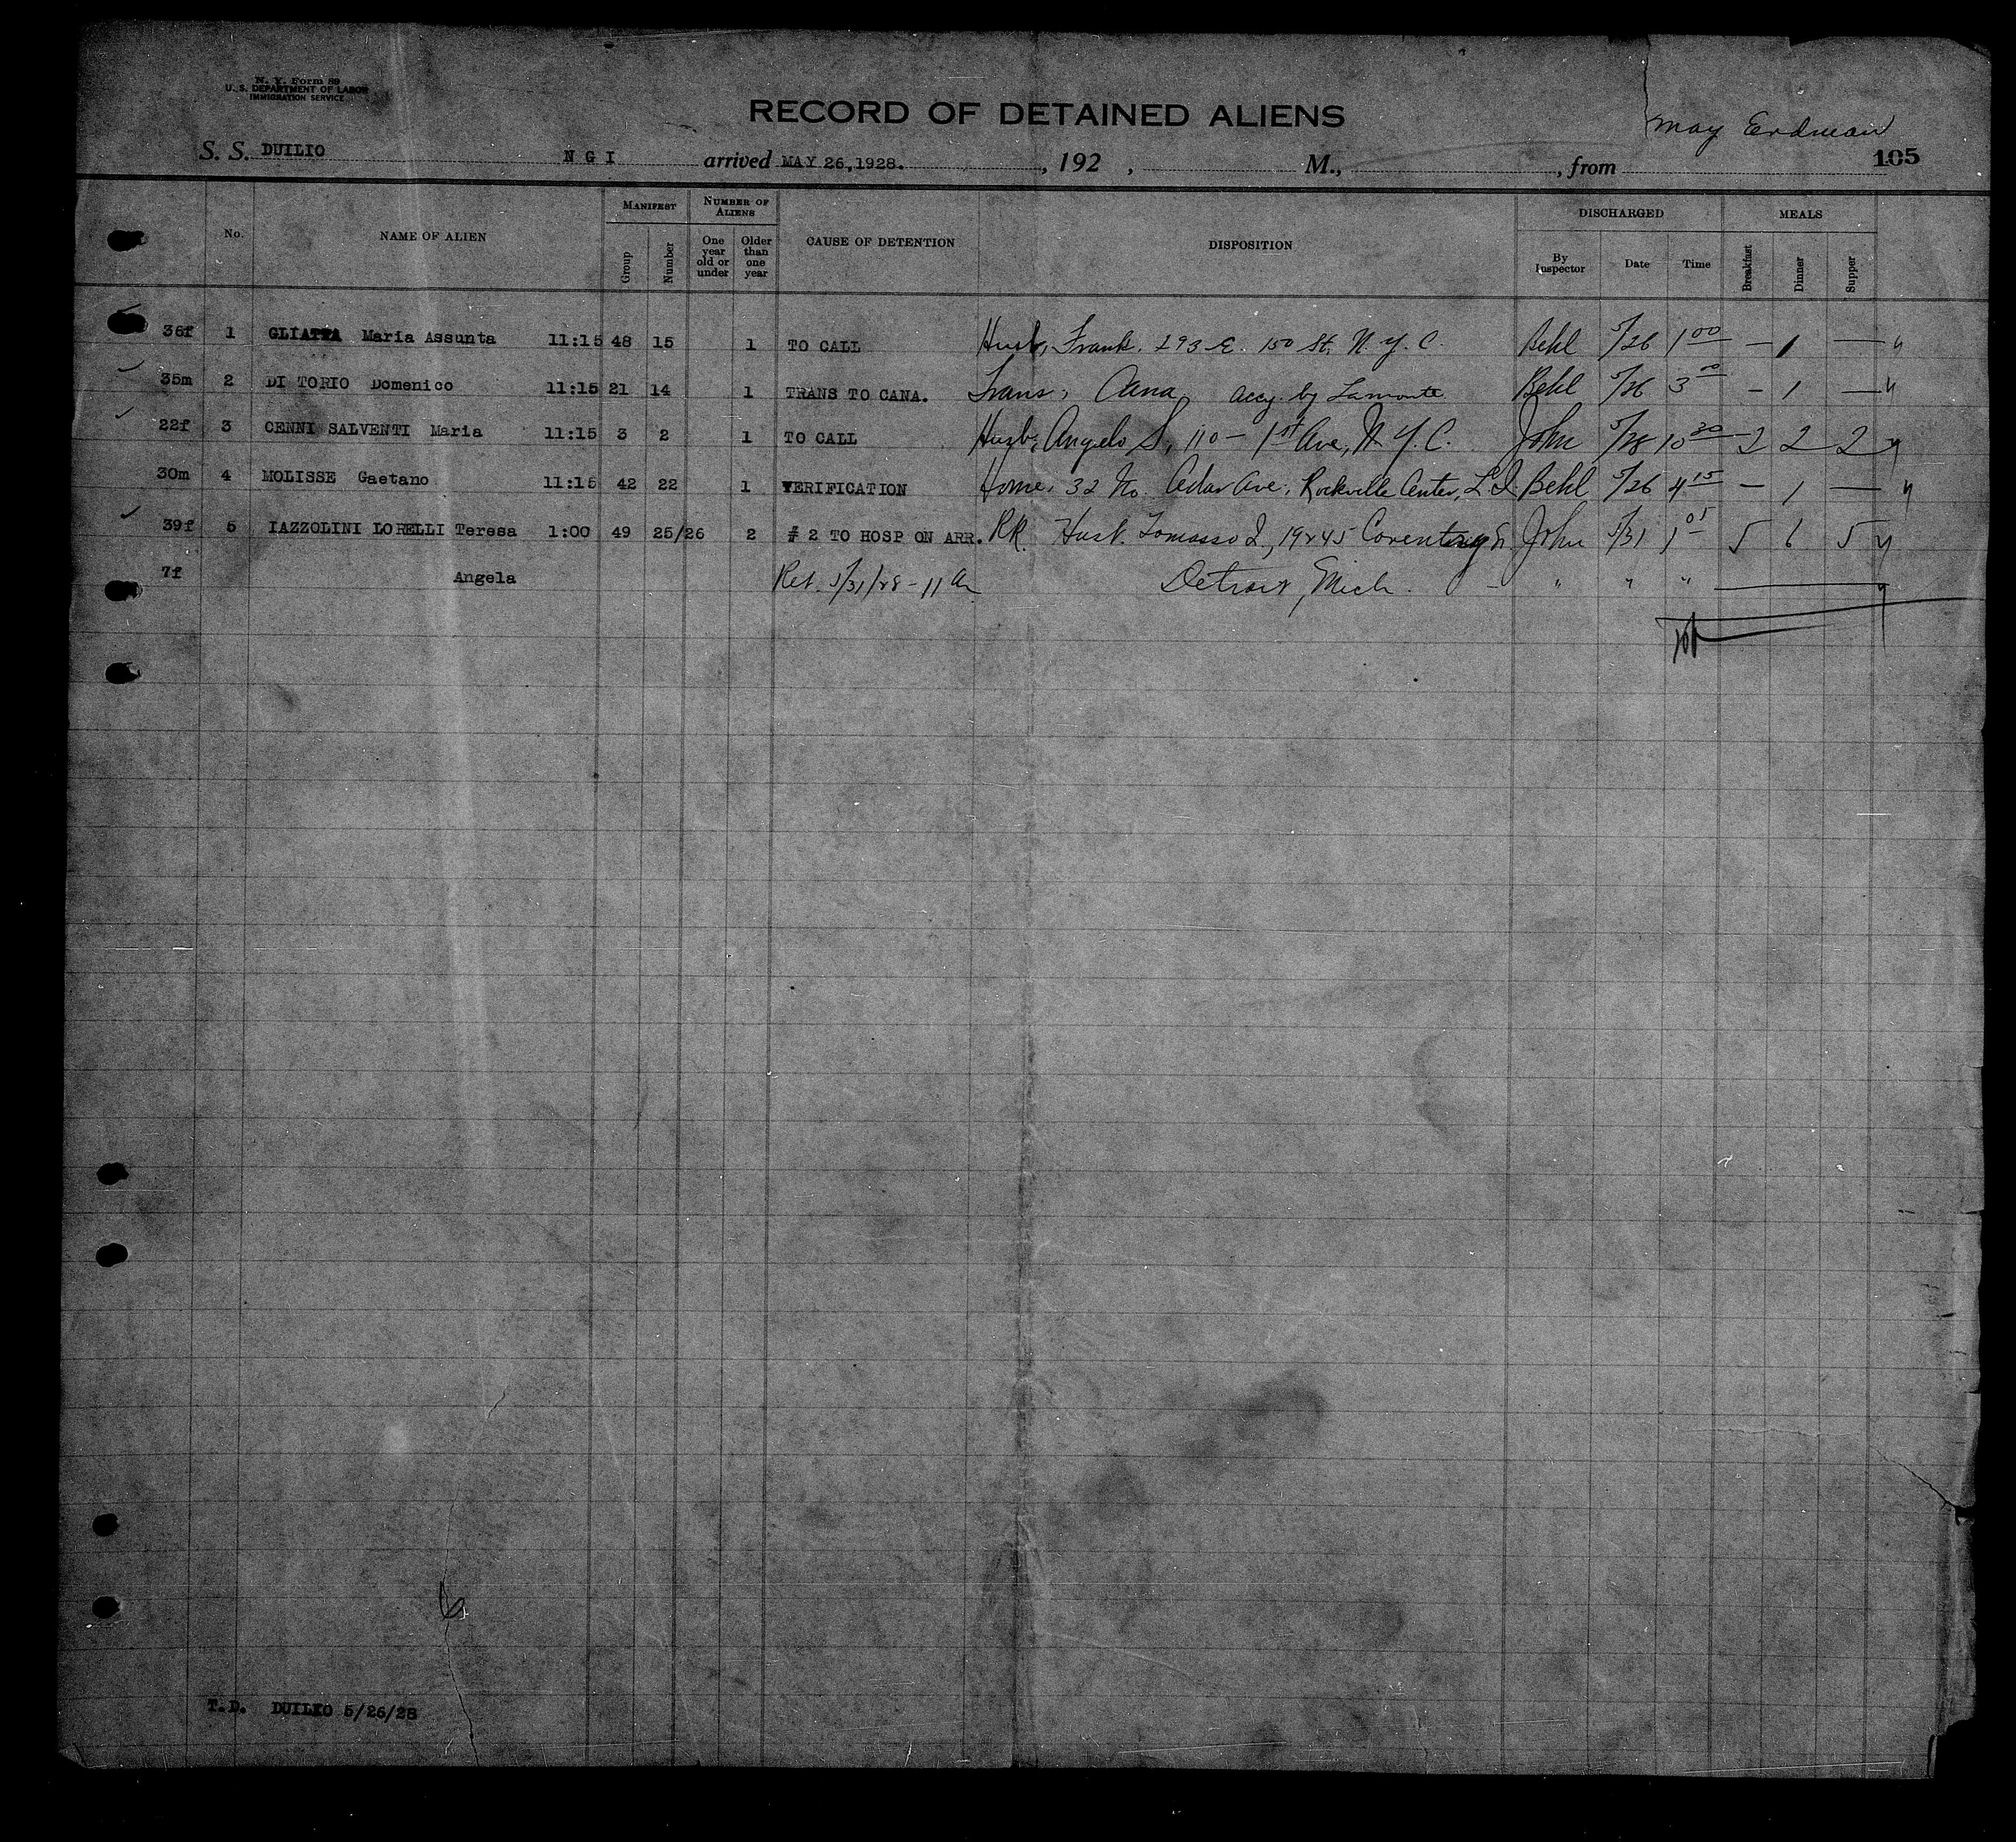 N. Y. Form 89
U. S. DEPARTMENT OF LABOR
IMMIGRATION SERVICE
RECORD OF DETAINED ALIENS
May Erdman
S. S. DUILIO N G I arrived MAY 26, 1928. , 192 , M., , from 105
No. NAME OF ALIEN MANIFEST Group Number NUMBER OF ALIENS One year old or under Older than one year CAUSE OF DETENTION DISPOSITION DISCHARGED By Inspector Date Time MEALS Breakfast Dinner Supper
36f 1 GLIATTA Maria Assunta 11:15 48 15 1 TO CALL Husb, Frank. 293 E. 150 St. N.Y.C. Behl 5/26 1 00 — 1 —
35m 2 DI TORIO Domenico 11:15 21 14 1 TRANS TO CANA. Trans, Cana, accy. by Lamonte Behl 5/26 3 00 — 1 —
22f 3 CENNI SALVENTI Maria 11:15 3 2 1 TO CALL Husb, Angelo S, 110 - 1st Ave, N.Y.C. John 5/28 10 30 2 2 2
30m 4 MOLISSE Gaetano 11:15 42 22 1 VERIFICATION Home, 32 No. Cedar Ave, Rockville Center, L.I. Behl 5/26 4 15 — 1 —
39f 5 IAZZOLINI LORELLI Teresa 1:00 49 25/26 2 # 2 TO HOSP ON ARR. RR. Husb. Tomasso I, 19245 Coventry John 5/31 1 05 5 6 5
7f Angela Ret. 5/31/28 - 11 am Detroit, Mich. " " "
T.D. DUILIO 5/26/28